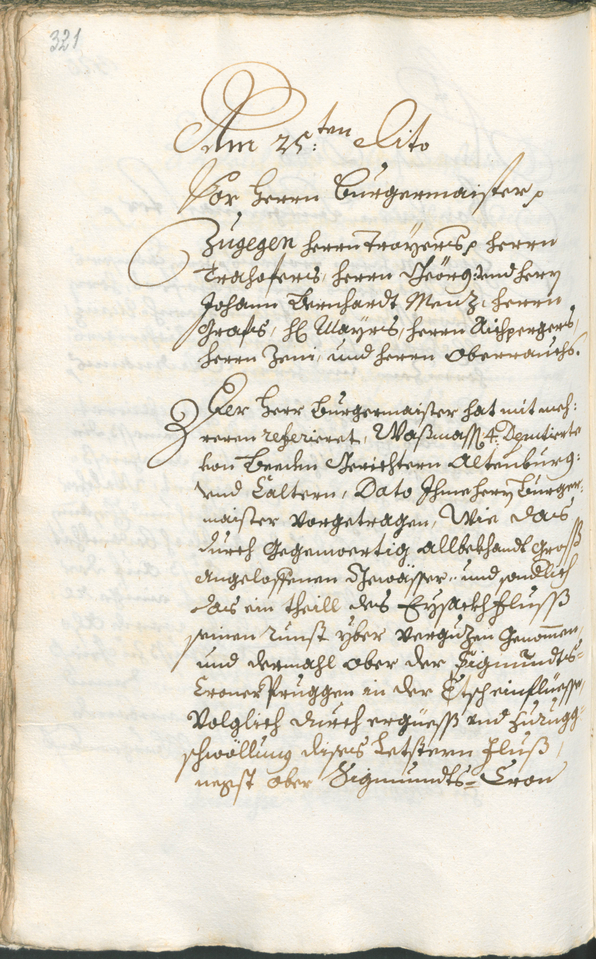 321
Am 25:ten Dito
Vor Herrn Burgermaister p
Zugegen herrn Troÿers p herrn
Trahofers, herrn Geörg: und herrn
Johann Bernhardt Menz, herrn
Grafs, H: Maÿrs, herrn Aichpergers,
herrn Zeni, und herrn Oberrauchs.
Der Herr Burgermaister hat mit meh:
rerem referieret, Waßmassen 4. Deputierte
von Beeden Gerichtern Altenburg:
und Caltern, Dato Ihme herrn Burger:
maister vorgetragen, Wie das
durch gegenwertig allbekhandt groß
angeloffenen Gewässer, und sondlich
das ein theill des Eÿsackh Fluss
seinen runst yber vergutzen genommen,
und dermahl ober der Sigmundts=
Croner Pruggen in der Etsch einfluesse,
Volglich durch ergüess und zurugg:
schwöllung dises letstern Fluß,
negst ober Sigmundts=Cron